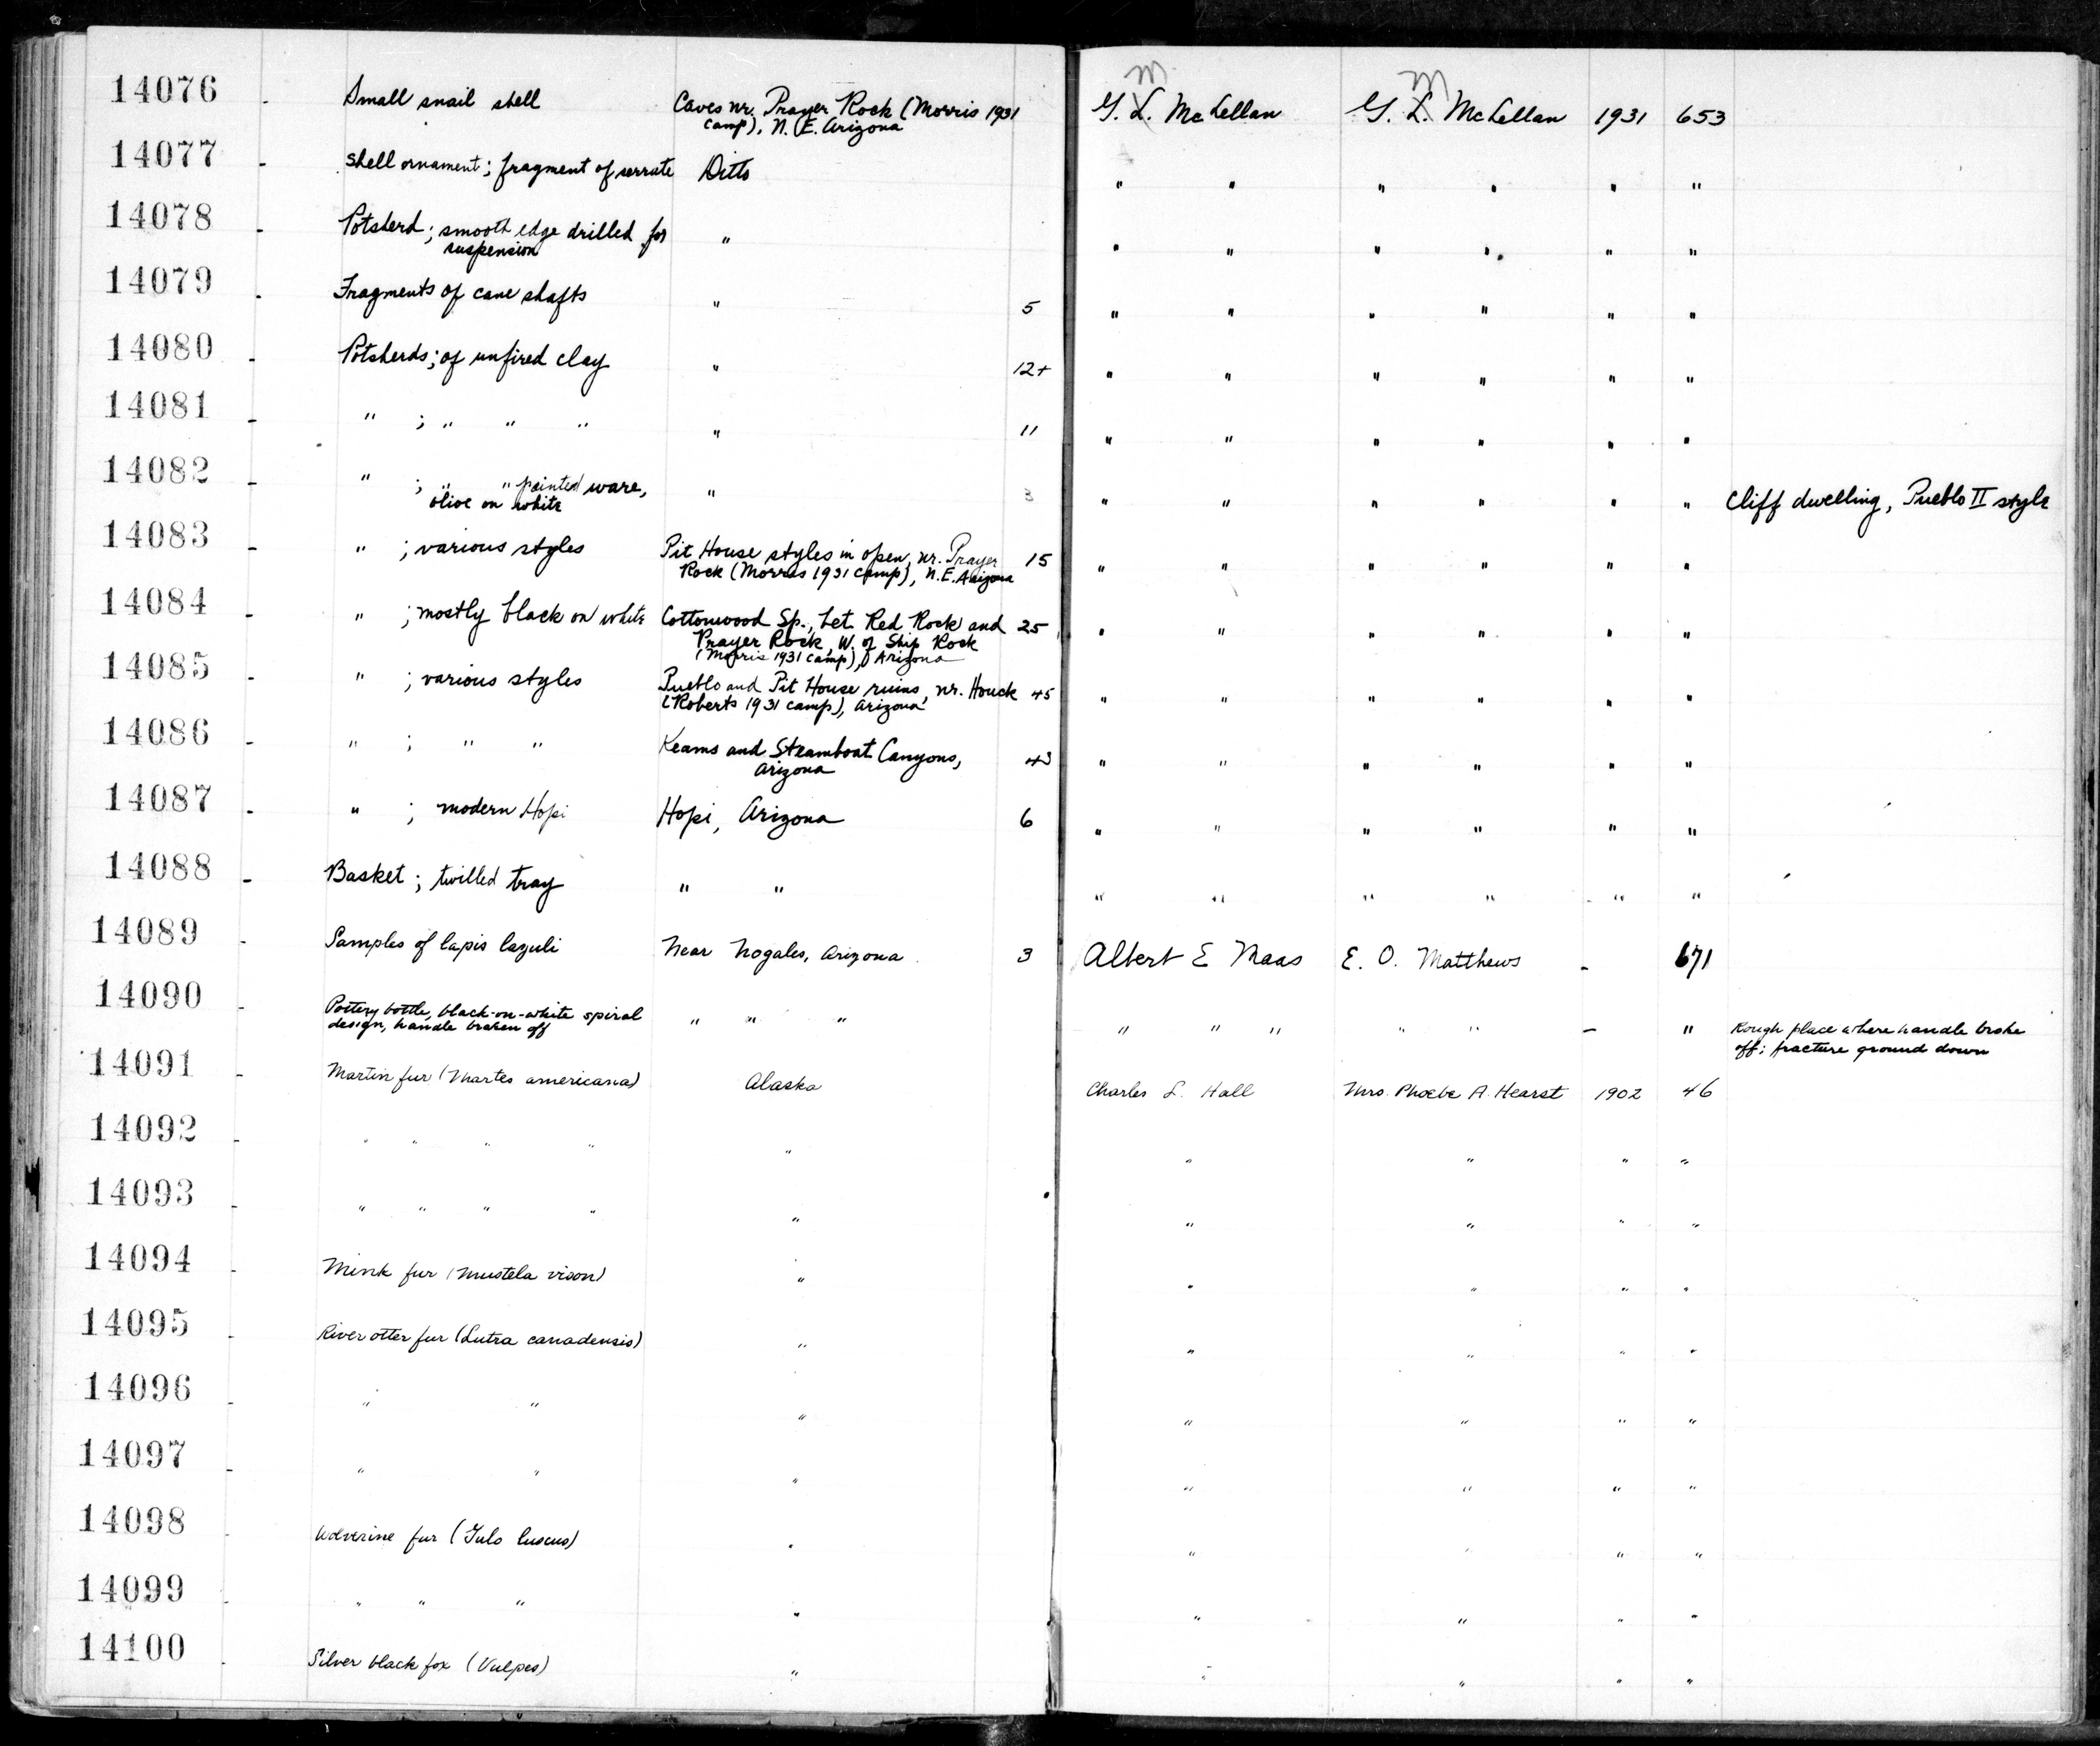 14076 - Small snail shell Caves nr. Prayer Rock (Morris 1931 G. L. McLellan G. L. McLellan 1931 653
camp), N. E. Arizona M M
14077 - Shell ornament; fragment of serrate Ditto " " " " " "
14078 - Potsherd; smooth edge drilled for " " " " " " "
suspension
14079 - Fragments of cane shafts " 5 " " " " " "
14080 - Potsherds; of unfired clay " 12+ " " " " " "
14081 - " ; " " " " 11 " " " " " "
14082 - " ; " " painted ware, " 3 " " " " " " Cliff dwelling, Pueblo II style
olive on white
14083 - " ; various styles Pit House styles in open, nr. Prayer 15 " " " " " "
Rock (Morris 1931 camp), N.E. Arizona
14084 - " ; mostly black on white Cottonwood Sp., bet. Red Rock and 25 " " " " " "
Prayer Rock, W. of Ship Rock
(Morris 1931 camp), Arizona
14085 - " ; various styles Pueblo and Pit House ruins, nr. Houck 45 " " " " " "
(Roberts 1931 camp), Arizona
14086 - " ; " " Keams and Steamboat Canyons, 43 " " " " " "
Arizona
14087 - " ; modern Hopi Hopi, Arizona 6 " " " " " "
14088 - Basket; twilled tray " " " " " " " "
14089 - Samples of lapis lazuli Near Nogales, Arizona 3 Albert E Maas E. O. Matthews - 671
14090 - Pottery bottle, black-on-white spiral " " " " " " " " - " Rough place where handle broke
design, handle broken off off; fracture ground down
14091 - Martin fur (Martes americana) Alaska Charles L. Hall Mrs. Phoebe A. Hearst 1902 46
14092 - " " " " " " " " "
14093 - " " " " " " " " "
14094 - Mink fur (Mustela vison) " " " " "
14095 - River otter fur (Lutra canadensis) " " " " "
14096 - " " " " " " "
14097 - " " " " " " "
14098 - Wolverine fur (Gulo luscus) " " " " "
14099 - " " " " " " " "
14100 - Silver black fox (Vulpes) " " " " "